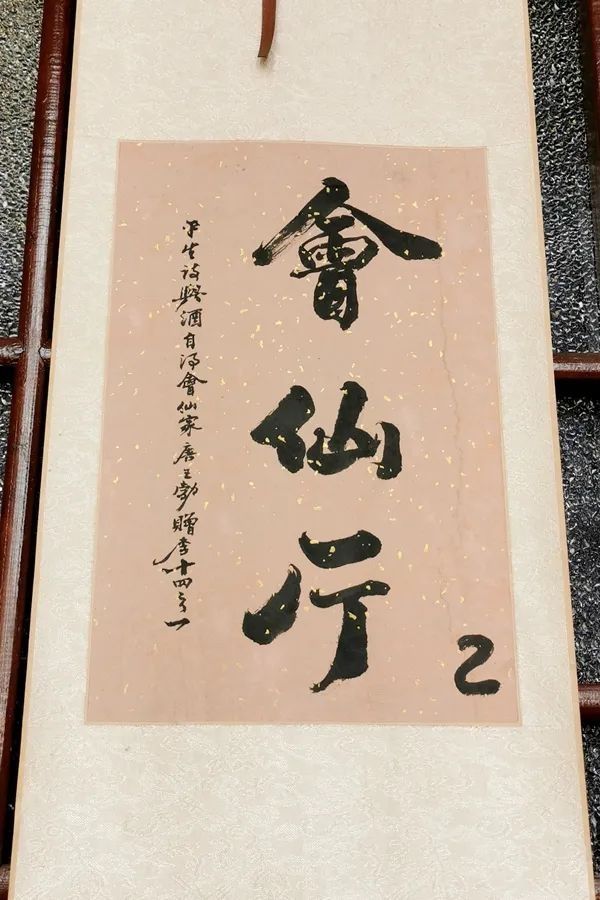 乙
會仙行
平生詩與酒自得會仙家唐王勃贈李十四之一